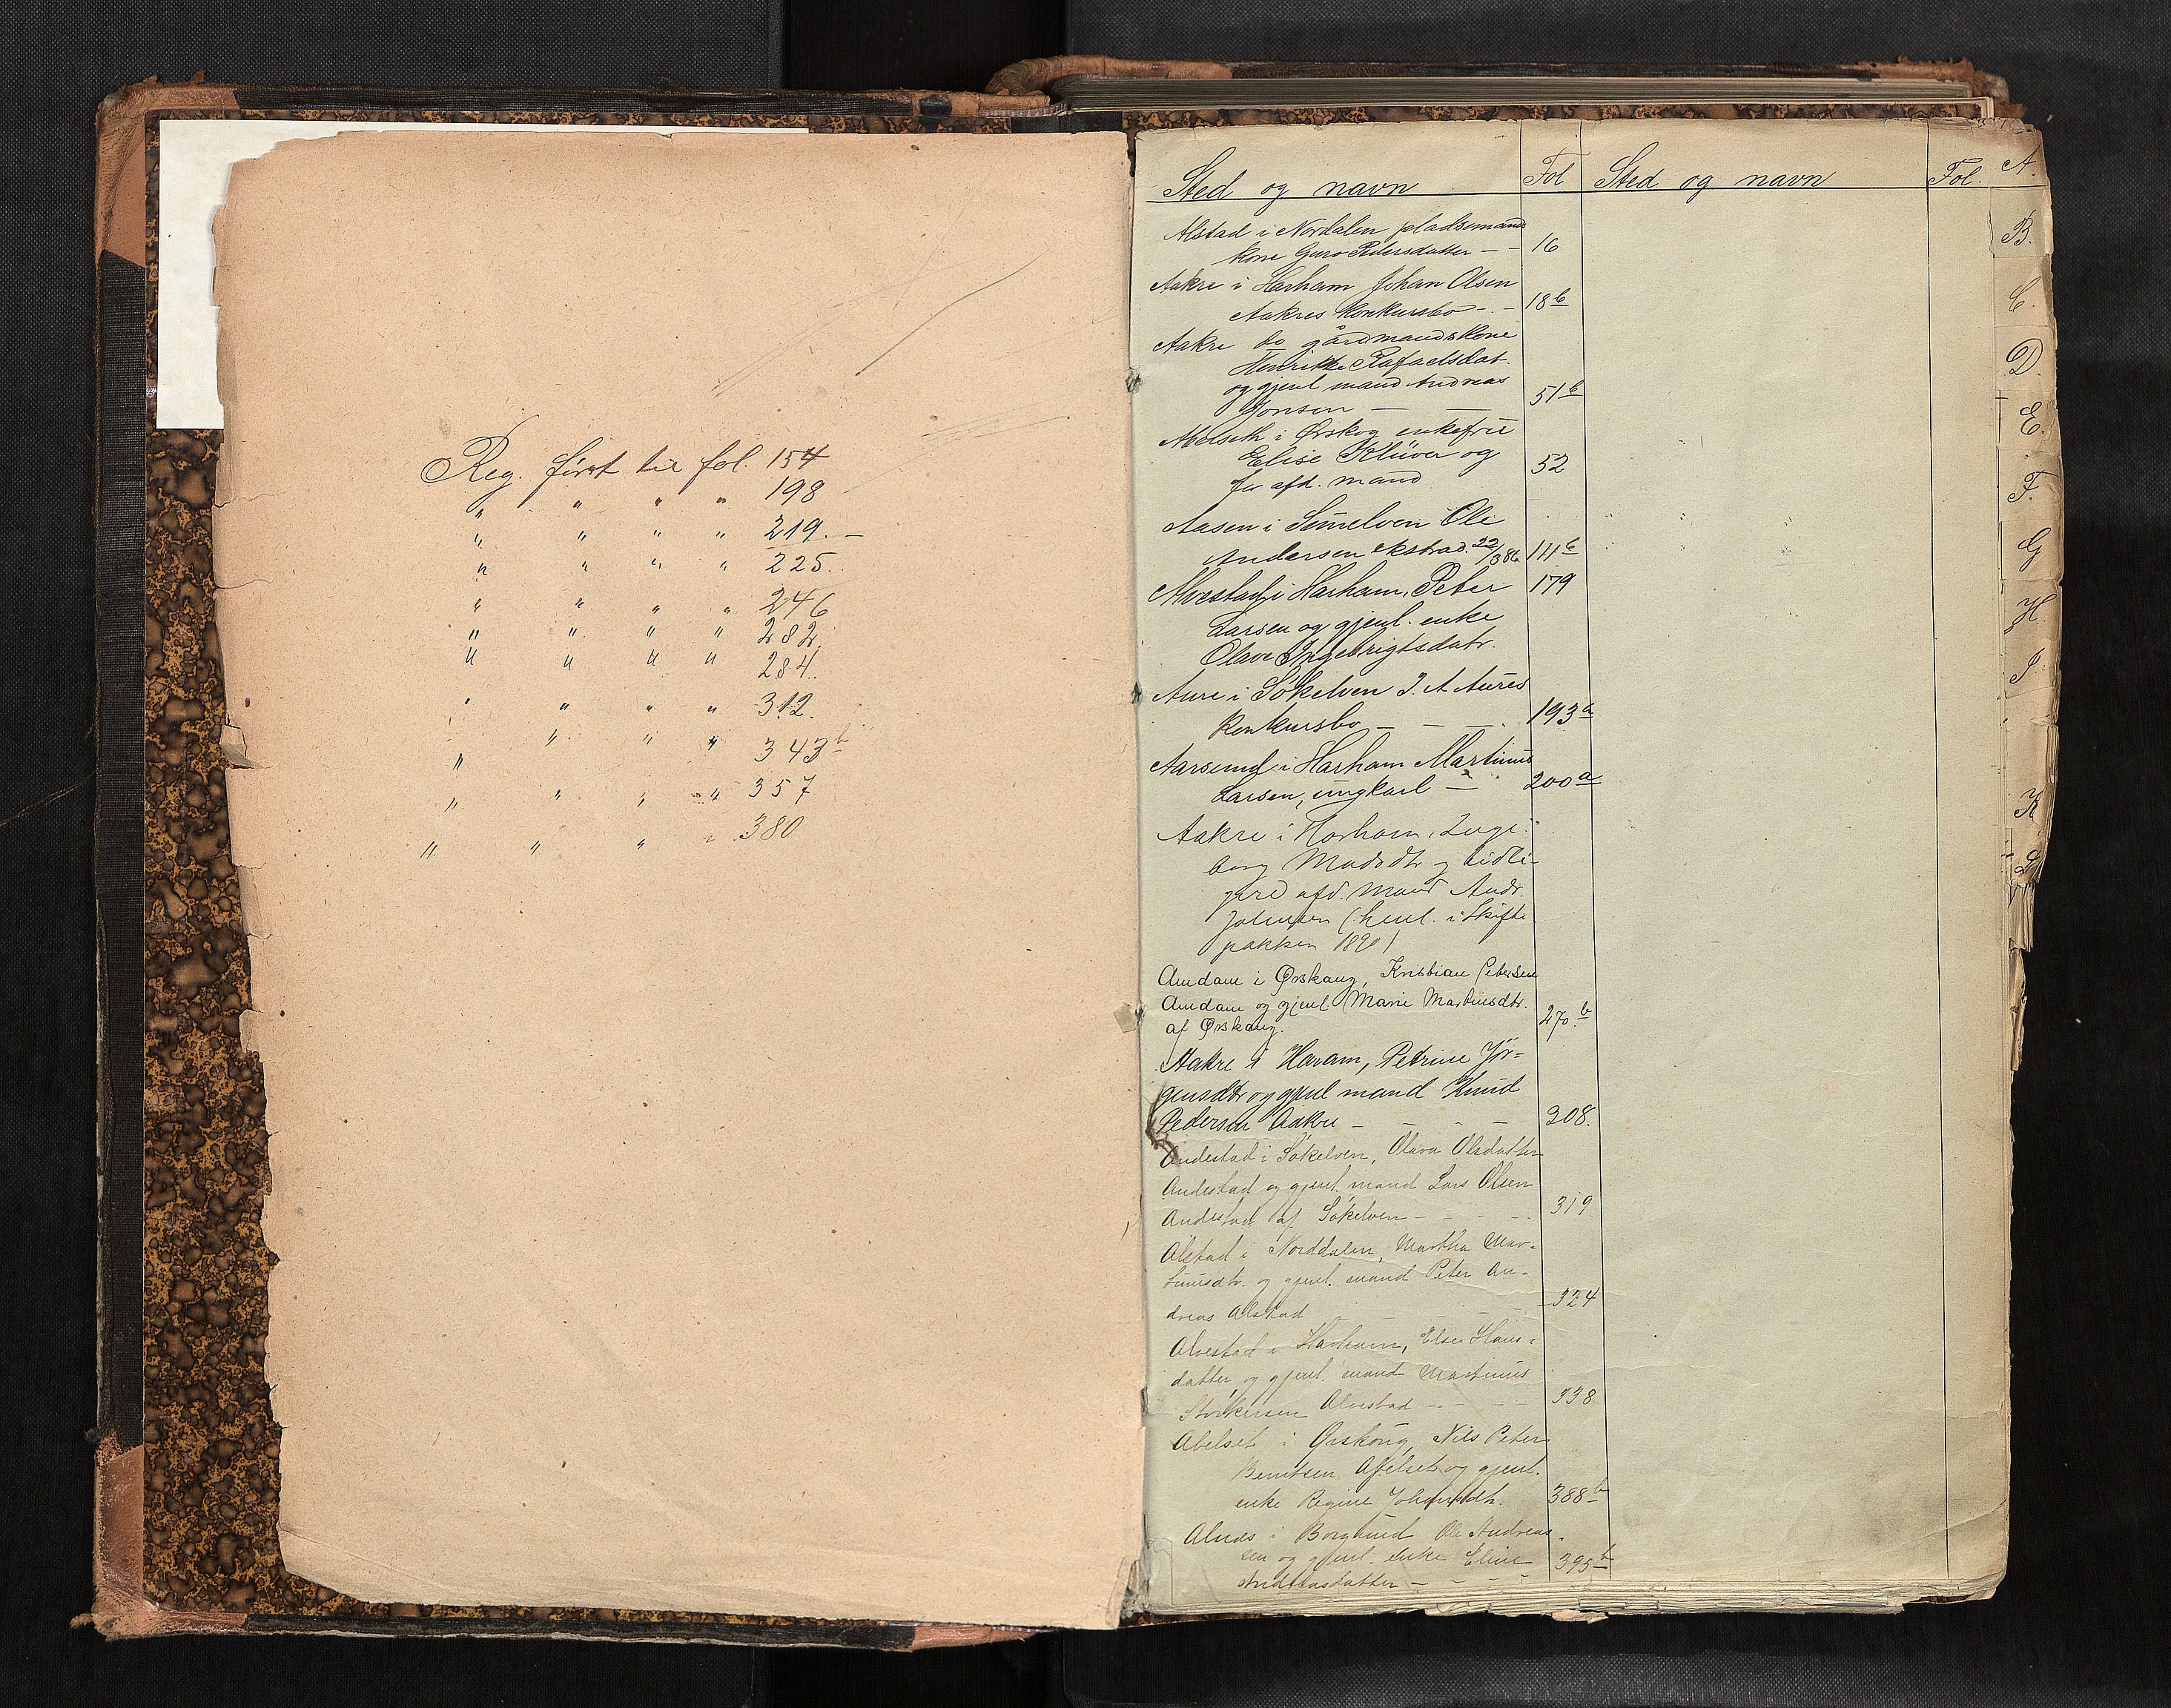 Reg. ført til fol. 154
" " " " 198
" " " " 219. —
" " " " 225.
" " " " 246
" " " " 282.
" " " " 284.
" " " " 312.
" " " " 343b
" " " " 357
" " " " 380
Sted og navn Fol Sted og navn Fol. A.
Alstad i Nordalen pladsmands
kone Guro Pedersdatter — — 16
Aakre i Harham Johan Olsen
Aakres konkursbo — . — 18b
Aakre do gårdmandskone
Henrikke Rafaelsdat.
og gjenl mand Andreas
Jonsen — — 51b
Abelseth i Ørskog enkefru
Elise Klüver og
før afd. mand 52
Aasen i Sunelven Ole
Andersen ekstrad. 22/386 111b
Alvestad i Harham, Peter 179
Larsen og gjenl. enke
Olave Ingebrigtsdatr.
Aure i Søkelven I. A Aures
konkursbo — — — . 193a
Aarsund i Harham Martinus
Larsen, ungkarl — 200a
Aakre i Harham, Inge-
borg Madsdtr og tidli-
gere afd. mand Andr.
Johnsen (henl. i Skifte
pakken 1890)
Amdam i Ørskaug, Kristian Petersen
Amdam og gjenl Marie Martinusdtr.
af Ørskaug. 270.b
Aakre i Haram, Petrine Jør-
gensdtr og gjenl mand Knud
Pedersen Aakre — — - — 308.
Andestad i Søkelven, Olava Olsdatter
Andestad og gjenl. mand Lars Olsen
Andestad af Søkelven — - - - - 319
Alstad i Norddalen, Martha Mar-
tinusdtr. og gjenl. mand Peter An-
dreas Alstad — — - 324
Alvestad i Harham, Else Hans-
datter og gjenl. mand Martinus
Storkersen Alvestad — - - - 338
Abelset i Ørskoug, Nils Peter
Berntsen Abelset og gjenl.
enke Regine Johansdtr. 388b
Alnes i Borgund Ole Andreas-
sen og gjenl. Enke Eline
Andreasdatter — - - - 395b
B.
C.
D.
E.
F.
G
H.
I
K
L